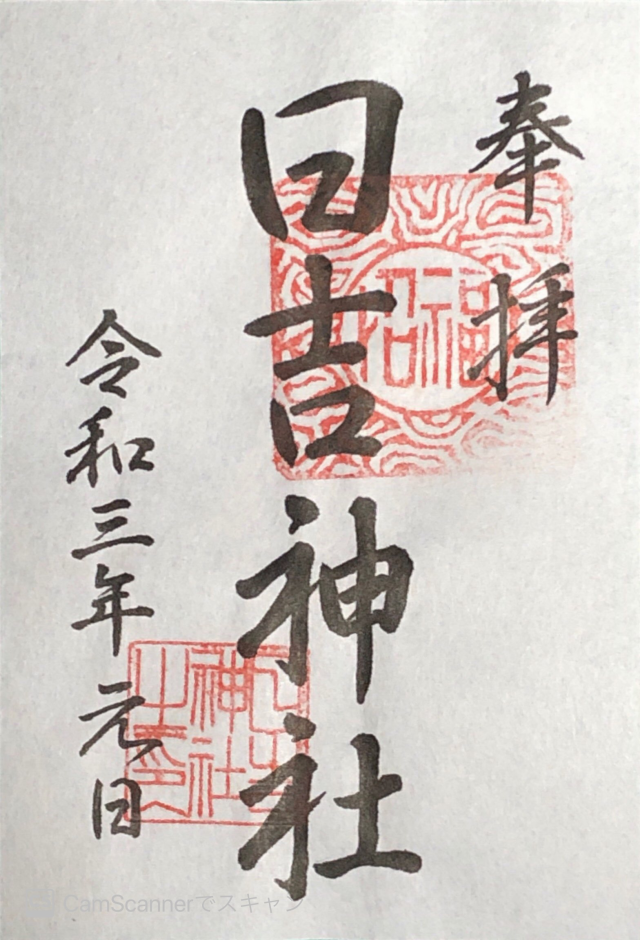 奉拝
日吉神社
令和三年元日
CamScannerでスキャン